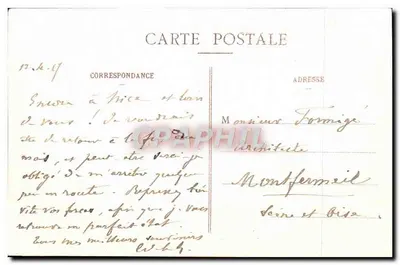 CARTE POSTALE
CORRESPONDANCE
ADRESSE
Encore à Nice et loin
de vous ! Je voudrais
être de retour à la fin du
mois, et peut être serai-je
obligé de m'arrêter quelque
peu en route. Reprenez
vite vos forces, afin que je vous
retrouve en parfait état.
Tous mes meilleurs souvenirs
Monsieur Formigé
architecte
Montfermeil
Seine et Oise
CPAPHIL